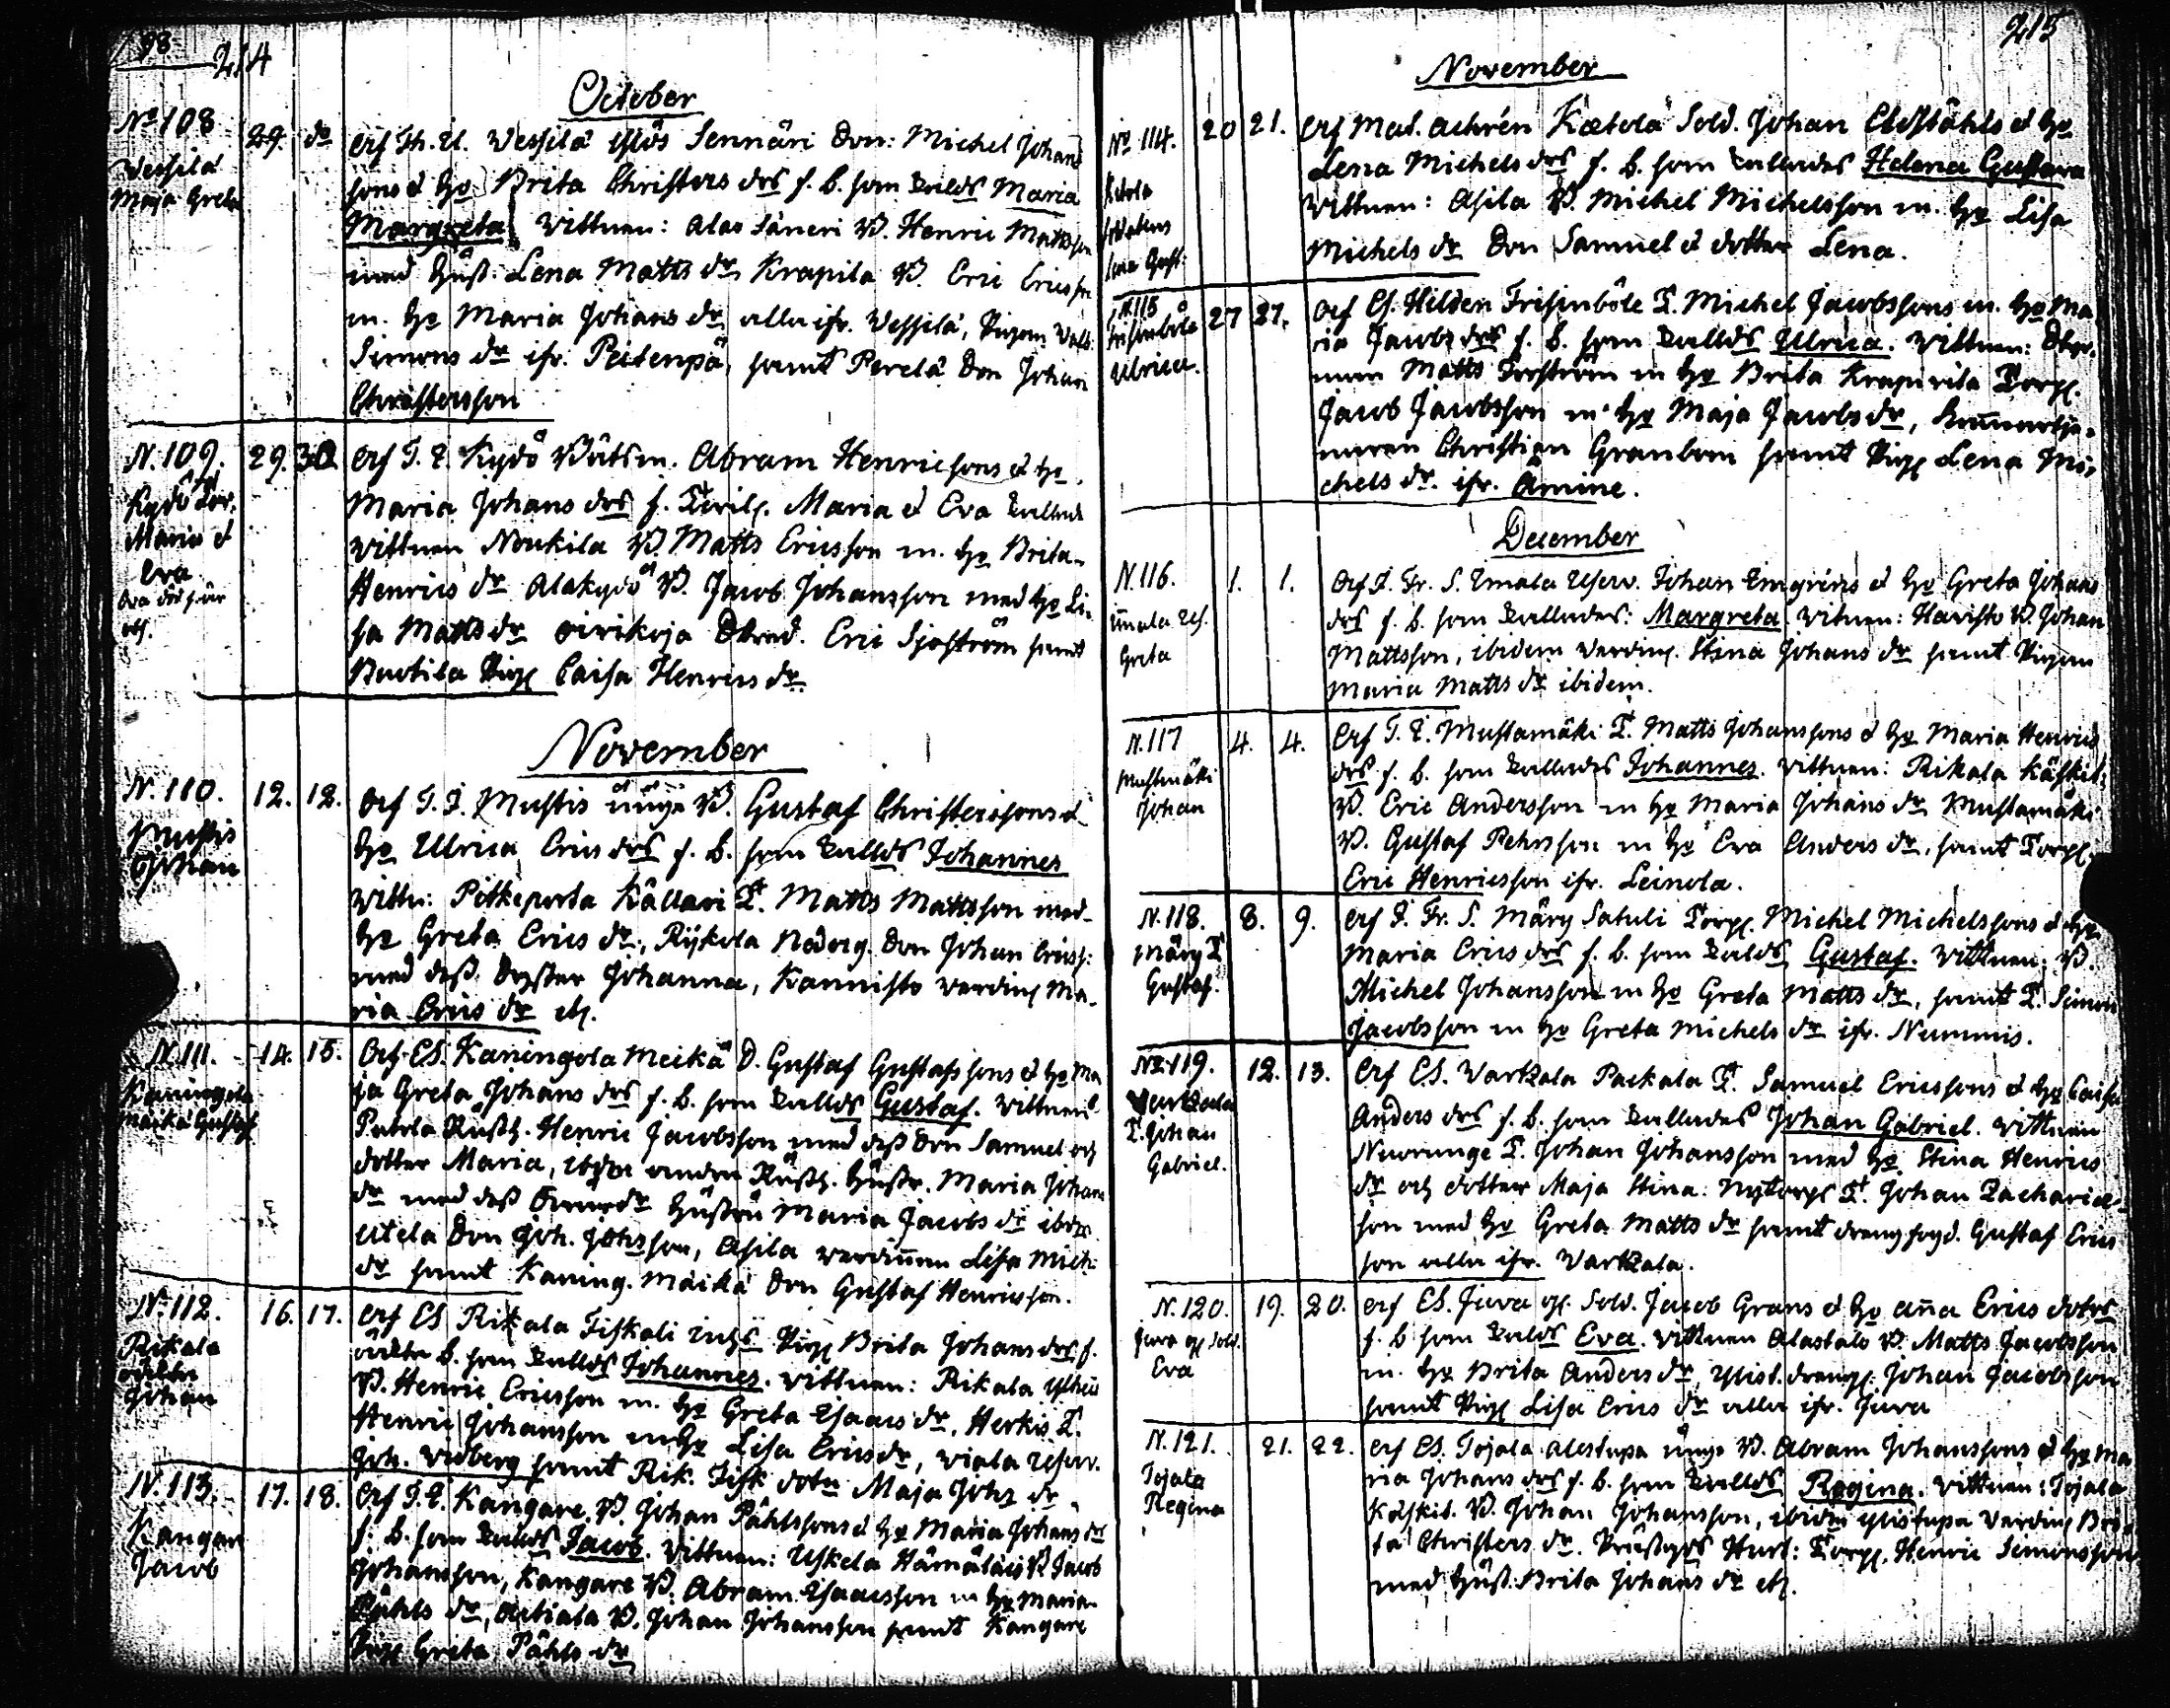 98
214
October
No 108
Wessilä
Maja Greta
29. do
Af Th. U. Wessilä Ylös Sennäri Bon: Michel Johans
sons & ho Brita Christers drs f. b. som kalds Maria
Margreta Vittnen: Alas Säneri B. Henric Mattsson
med hust. Lena Matts dr Krapila B. Eric Ericsson
m. ho Maria Johans dr alla ifr. Wessilä, Pigan Valb.
Simons dr ifr. Peitenpä, samt Perelä Bon Johan
Christersson
N. 109.
Kydö
Maria &
Eva
29. 30.
Af T. E. Kydö Båtsm. Abram Henricsons & ho
Maria Johans drs f. Maria & Eva kallade
Vittnen Noukila B. Matts Ericsson m. ho Brita
Henrics dr Alakydö B. Jacob Johansson med ho Li-
sa Matts dr Eric Sjöström samt
Pig Caisa Henrics dr.
November
N. 110.
Mustis
Johan
12. 12.
Af T. I. Mustis unge B. Gustaf Christerssons &
ho Ulrica Erics drs f. b. som kallds Johannes
Vittn: Pitkeporta Källari T. Matts Mattsson med
ho Greta Erics dr, Rijkola Bon Johan Ericss:
med dess Syster Johanna, Kannisto Ma-
ria Erics dr etc.
N. 111.
Kaningola
Meikä Gustaf
14. 15.
Af Es. Kaningola Meikä B. Gustaf Gustafssons & ho Ma
ja Greta Johans drs f. b. som kallds Gustaf. Vittnen
Rusth. Henric Jacobsson med dess Son Samuel och
dotter Maria, andra Rusth. Hustr. Maria Johans
dr med dess Hustru Maria Jacobs dr ibdm
Utela Bon Joh. Johsson, Asila Lisa Mich:
dr samt Kaning. Maikä Bon Gustaf Henricsson.
N. 112.
Rikala
oäkta
Johan
16. 17.
Af Es Rikala Fiskali Pig Brita Johans drs f.
oäkta b. som kallds Johannes. Vittnen: Rikala
B. Henric Ericsson m. ho Greta Isaacs dr, Herkis T.
Henric Johansson m ho Lisa Erics dr, Viala
Joh. Widberg samt Rik. Fisk dotn Maja Johs dr
N. 113.
Kangare
Jacob
17. 18.
Af T. E. Kangare B. Johan Påhlssons & ho Maria Johans dr
f. b. som kallds Jacob. Vittnen: Uskela Hämäläis B Jacob
Johansson, Kangare B. Abram Isaacsson m ho Maria
Påhls dr, B. Johan Johansson samt Kangare
Pig Greta Påhls dr
215
November
No 114.
Ketola
Soldatens
Lena Gust:
20 21.
Af Mat. Achrén Kætola Sold. Johan & ho
Lena Michels drs f. b. som kallades Helena Gustava
Vittnen: Asila B. Michel Michelsson m. ho Lisa
Michels dr Son Samuel & dotter Lena.
N. 115
Frisinböle
Ulrica.
27 27.
Af Es. Hilden Frisinböle T. Michel Jacobssons m. ho Ma
ria Jacobs drs f. b. som kallds Ulrica. Vittnen:
Matts Forström m ho Brita Torp.
Jacob Jacobsson m ho Maja Jacobs dr,
Christian Granbom samt Pig Lena Mi-
chels dr. ifr. Åmine.
December
N. 116.
Greta
1. 1.
Af I. Fr. S. Johan & ho Greta Johans
drs f. b. som kallades: Margreta. Vitnen: Haristo B. Johan
Mattsson, ibidem Stina Johans dr samt Pigan
Maria Matts dr ibidem.
N. 117
Mustmäki
Johan
4. 4.
Af T. E. Mustamäki T. Matts Johanssons & ho Maria Henrics
drs f. b. som kallades Johannes. Vittnen: Rikala Käskil:
B. Eric Andersson m ho Maria Johans dr Mustamäki
B. Gustaf Pehrsson m ho Eva Anders dr, samt Torp.
Eric Henricsson ifr. Leinola.
N. 118.
Märy T
Gustaf.
8. 9.
Af I. Fr. S. Märy Satuli Torp. Michel Michelssons & ho
Maria Erics drs f. b. som kalds Gustaf. Vittnen: B.
Michel Johansson m ho Greta Matts dr, samt T. Simon
Jacobsson m ho Greta Michels dr ifr. Nummis.
No 119.
Vartzala
T. Johan
Gabriel.
12. 13.
Af Es. Vartzala Packala T. Samuel Ericssons & ho Caisa
Anders drs f. b. som kallades Johan Gabriel. Vittnen
T. Johan Johansson med ho Stina Henrics
dr och dotter Maja Stina. Nytorp T. Johan Zacharias-
son med ho Greta Matts dr samt drengsogd. Gustaf Erics
son alla ifr. Vartzala.
N. 120.
Juva of Sold.
Eva
19. 20.
Af Es. Juva of. Sold. Jacob Grans & ho Aña Erics dotrs
f. b som kalds Eva. Vittnen Alastalo B. Matts Jacobsson
m. ho Brita Anders dr, Ylist. dreng. Johan Jacobsson
samt Pig Lisa Erics dr alla ifr. Juva
N. 121.
Tojala
Regina
21. 22.
Af Es. Tojala Alestupa unge B. Abram Johanssons & ho Ma
ria Johans drs f. b. som kallds Regina. Vittnen: Tojala
Käskil. B. Johan Johansson, ibidm Ylistupa Bri
ta Christers dr. Torp. Henric Simonsson
med Hust: Brita Johans dr etc.